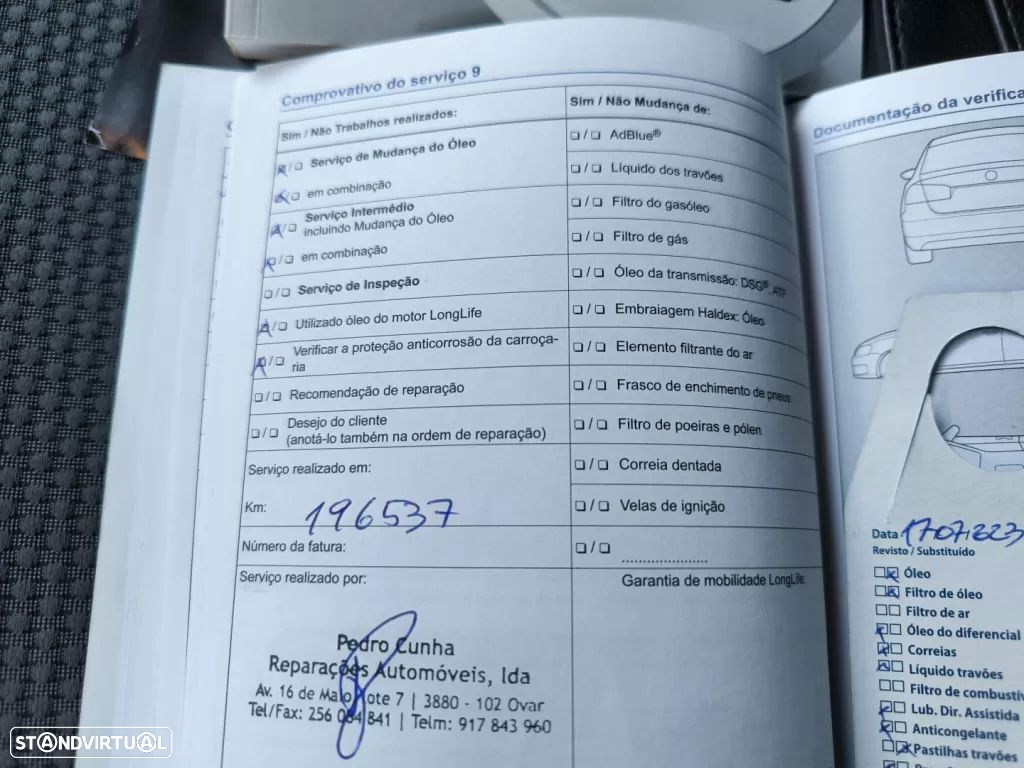 Comprovativo do serviço 9
Sim / Não Trabalhos realizados:
Serviço de Mudança do Óleo
em combinação
Serviço Intermédio
incluindo Mudança do Óleo
em combinação
Serviço de Inspeção
Utilizado óleo do motor LongLife
Verificar a proteção anticorrosão da carroça-
ria
Recomendação de reparação
Desejo do cliente
(anotá-lo também na ordem de reparação)
Serviço realizado em:
Km: 196537
Número da fatura:
Serviço realizado por:
Pedro Cunha
Reparações Automóveis, lda
Av. 16 de Maio Lote 7 | 3880 - 102 Ovar
Tel/Fax: 256 084 841 | Telm: 917 843 960
Sim / Não Mudança de:
AdBlue®
Líquido dos travões
Filtro do gasóleo
Filtro de gás
Óleo da transmissão: DSG®, ATF
Embraiagem Haldex: Óleo
Elemento filtrante do ar
Frasco de enchimento de pneus
Filtro de poeiras e pólen
Correia dentada
Velas de ignição
Garantia de mobilidade LongLife:
Documentação da verifica
Data
Revisto / Substituído
Óleo
Filtro de óleo
Filtro de ar
Óleo do diferencial
Correias
Líquido travões
Filtro de combustív
Lub. Dir. Assistida
Anticongelante
Pastilhas travões
STANDVIRTUAL